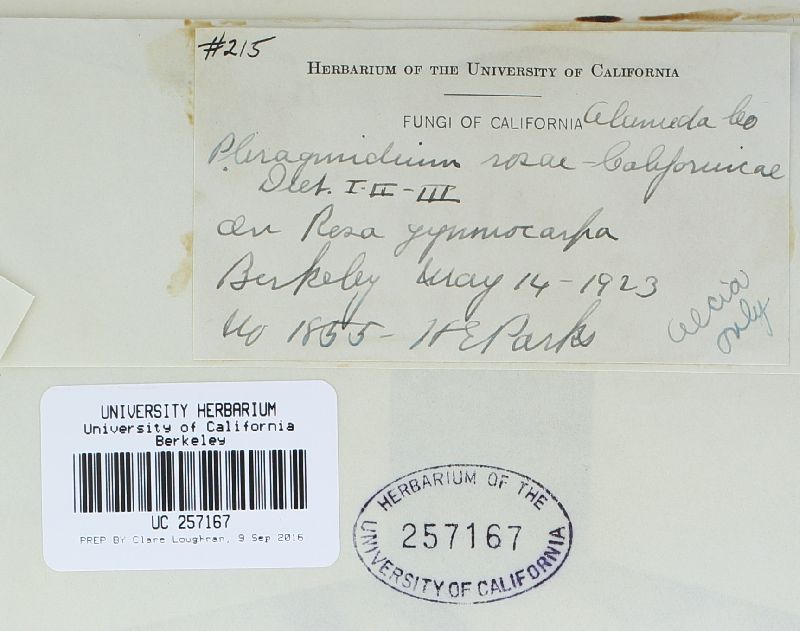 #215
HERBARIUM OF THE UNIVERSITY OF CALIFORNIA
FUNGI OF CALIFORNIA Alameda Co
Phragmidium rosae-Californicae
Diet. I-II-III
on Rosa gymnocarpa
Berkeley May 14-1923
No 1855- H E Parks
aecia
only
UNIVERSITY HERBARIUM
University of California
Berkeley
UC 257167
PREP BY Clare Loughran, 9 Sep 2016
HERBARIUM OF THE
257167
UNIVERSITY OF CALIFORNIA